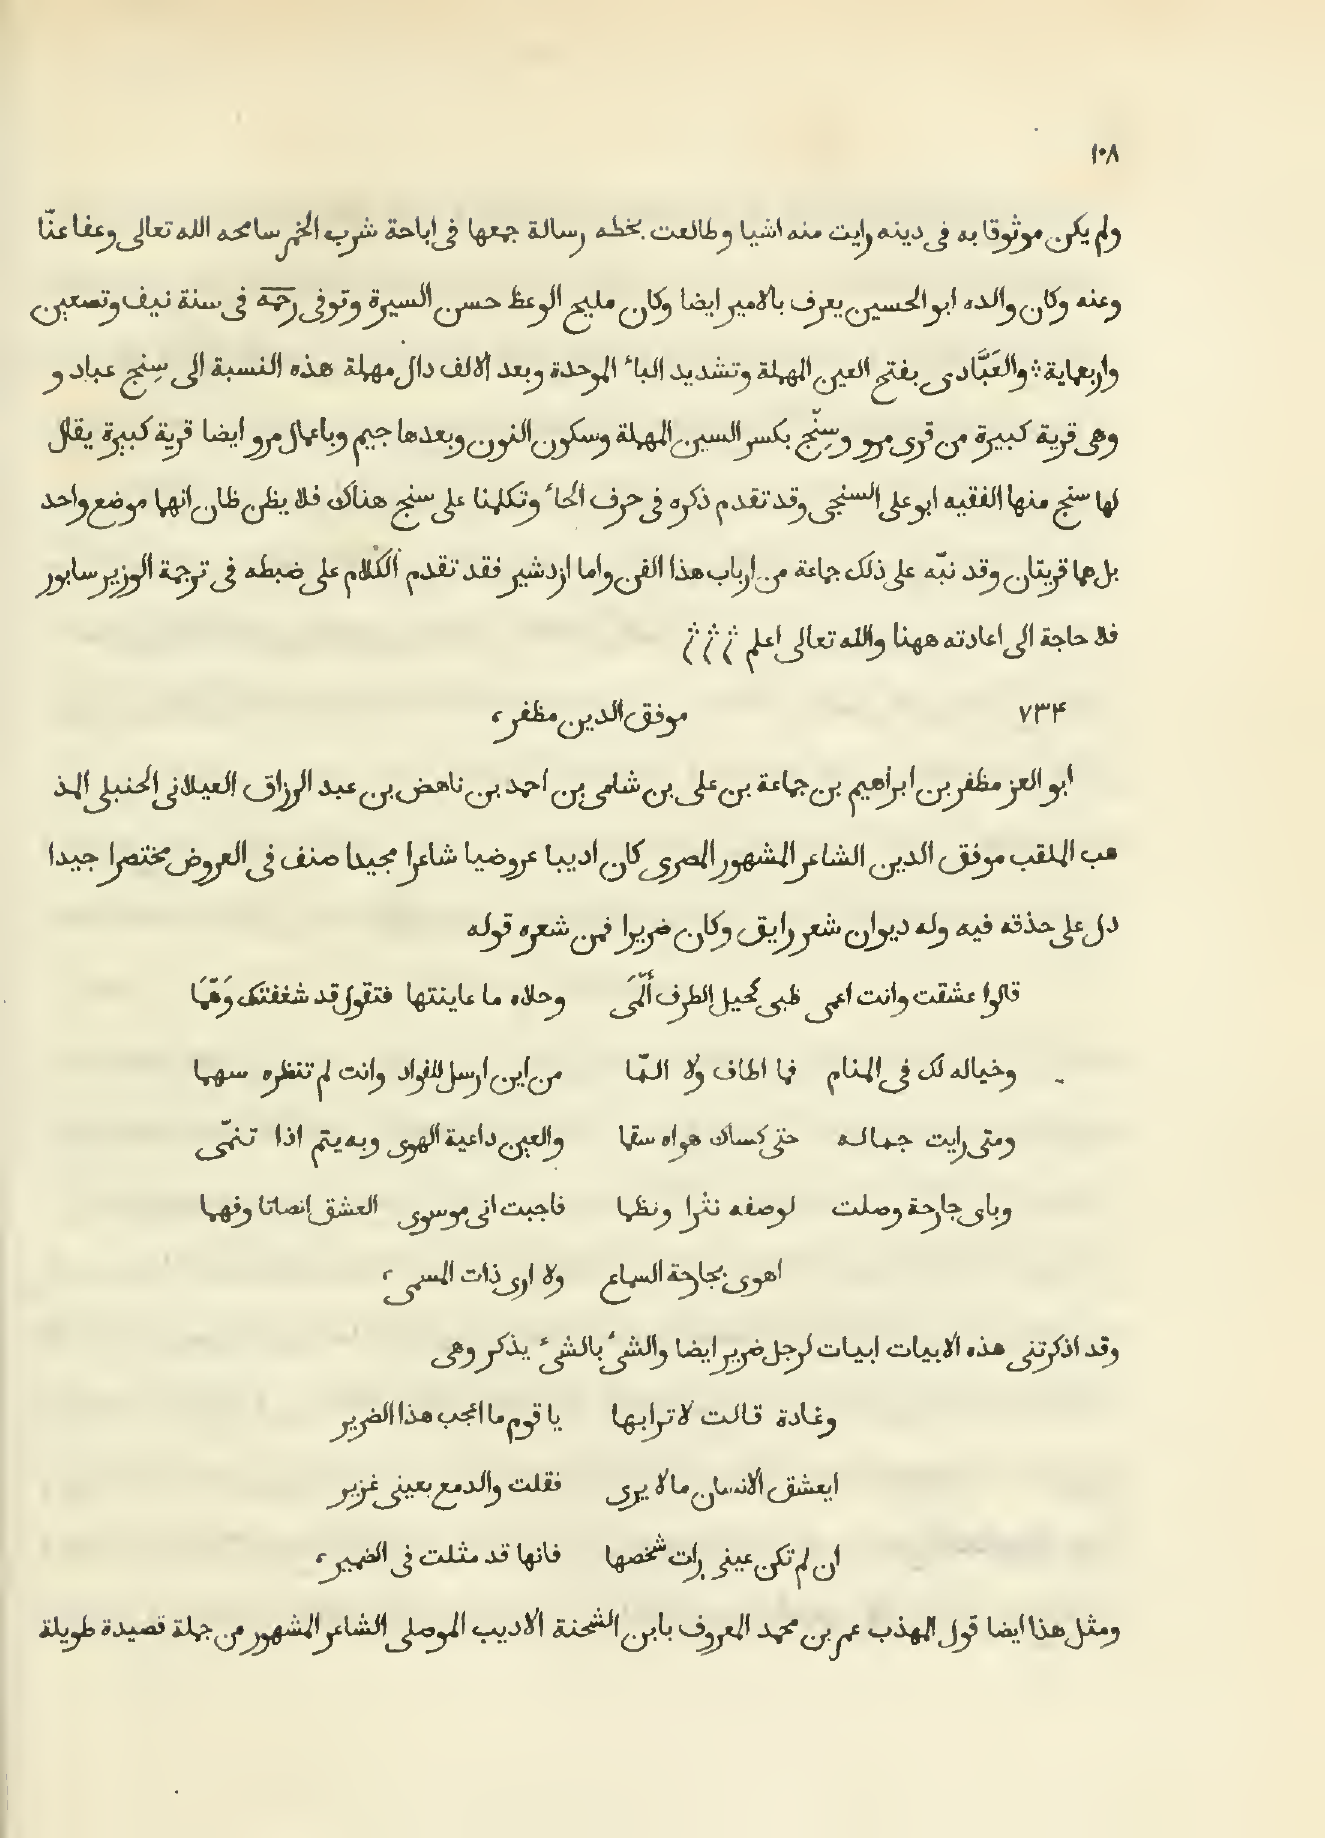 ١٠٨
ولم يكن موثوقا به فى دينه رايت منه اشيا وطالعت بخطه رسالة جمعها فى اباحة شرب الخمر سامحه الله تعالى وعفا عنّا
وعنه وكان والده ابو الحسين يعرف بالامير ايضا وكان مليح الوعظ حسن السيرة وتوفى رحمه فى سنة نيف وتسعين
واربعماية ؞ والعَبَّادى بفتح العين المهملة وتشديد الباء الموحدة وبعد الالف دال مهملة هذه النسبة الى سِنج عباد و
وهى قرية كبيرة من قرى مرو وسِنّج بكسر السين المهملة وسكون النون وبعدها جيم وباعمال مرو ايضا قرية كبيرة يقال
لها سنج منها الفقيه ابو على السنجى وقد تقدم ذكره فى حرف الحاء وتكلمنا على سنج هناك فلا يظن ظان انهما موضع واحد
بل هما قريتان وقد نبّه على ذلك جماعة من ارباب هذا الفن واما ازدشير فقد تقدم الكلام على ضبطه فى ترجمة الوزير سابور
فلا حاجة الى اعادته ههنا والله تعالى اعلم
٧٣۴ موفق الدين مظفر،
ابو العز مظفر بن ابراهيم بن جماعة بن على بن شامى بن احمد بن ناهض بن عبد الرزاق العيلانى الحنبلى المذ
هب الملقب موفق الدين الشاعر المشهور المصرى كان اديبا عروضيا شاعرا مجيدا صنف فى العروض مختصرا جيدا
دل على حذقه فيه وله ديوان شعر رايق وكان ضريرا فمن شعره قوله
قالوا عشقت وانت اعمى ظبى كحيل الطرف أَلْمَى وحلاه ما عاينتها فتقول قد شغفتك وَهْمَا
وخياله لك فى المنام فما اطاف ولا المّا من اين ارسل للفواد وانت لم تنظره سهما
ومتى رايت جماله حتى كساك هواه سقما والعين داعية الهوى وبه يتم اذا تنمّى
وباى جارحة وصلت لوصفه نثرا ونظما فاجبت انى موسوى العشق انصاتا وفهما
اهوى بجارحة السماع ولا ارى ذات المسمى،
وقد اذكرتنى هذه الابيات ابيات لرجل ضرير ايضا والشىء بالشىء يذكر وهى
وغادة قالت لاترابها يا قوم ما اعجب هذا الضرير
ايعشق الانسان ما لا يرى فقلت والدمع بعينى غزير
ان لم تكن عينى رات شخصها فانها قد مثلت فى الضمير،
ومثل هذا ايضا قول المهذب عمر بن محمد المعروف بابن الشحنة الاديب الموصلى الشاعر المشهور من جملة قصيدة طويلة